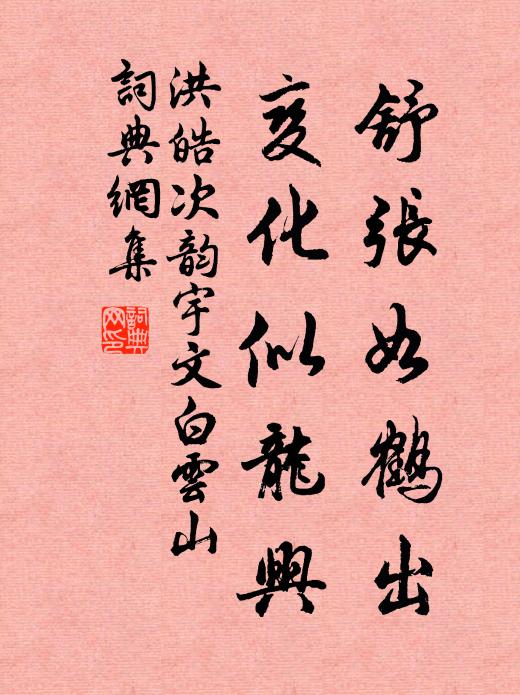 舒張如鶴出
変化似龍興
洪皓次韵宇文白雲山
詞典網集
詞典网印